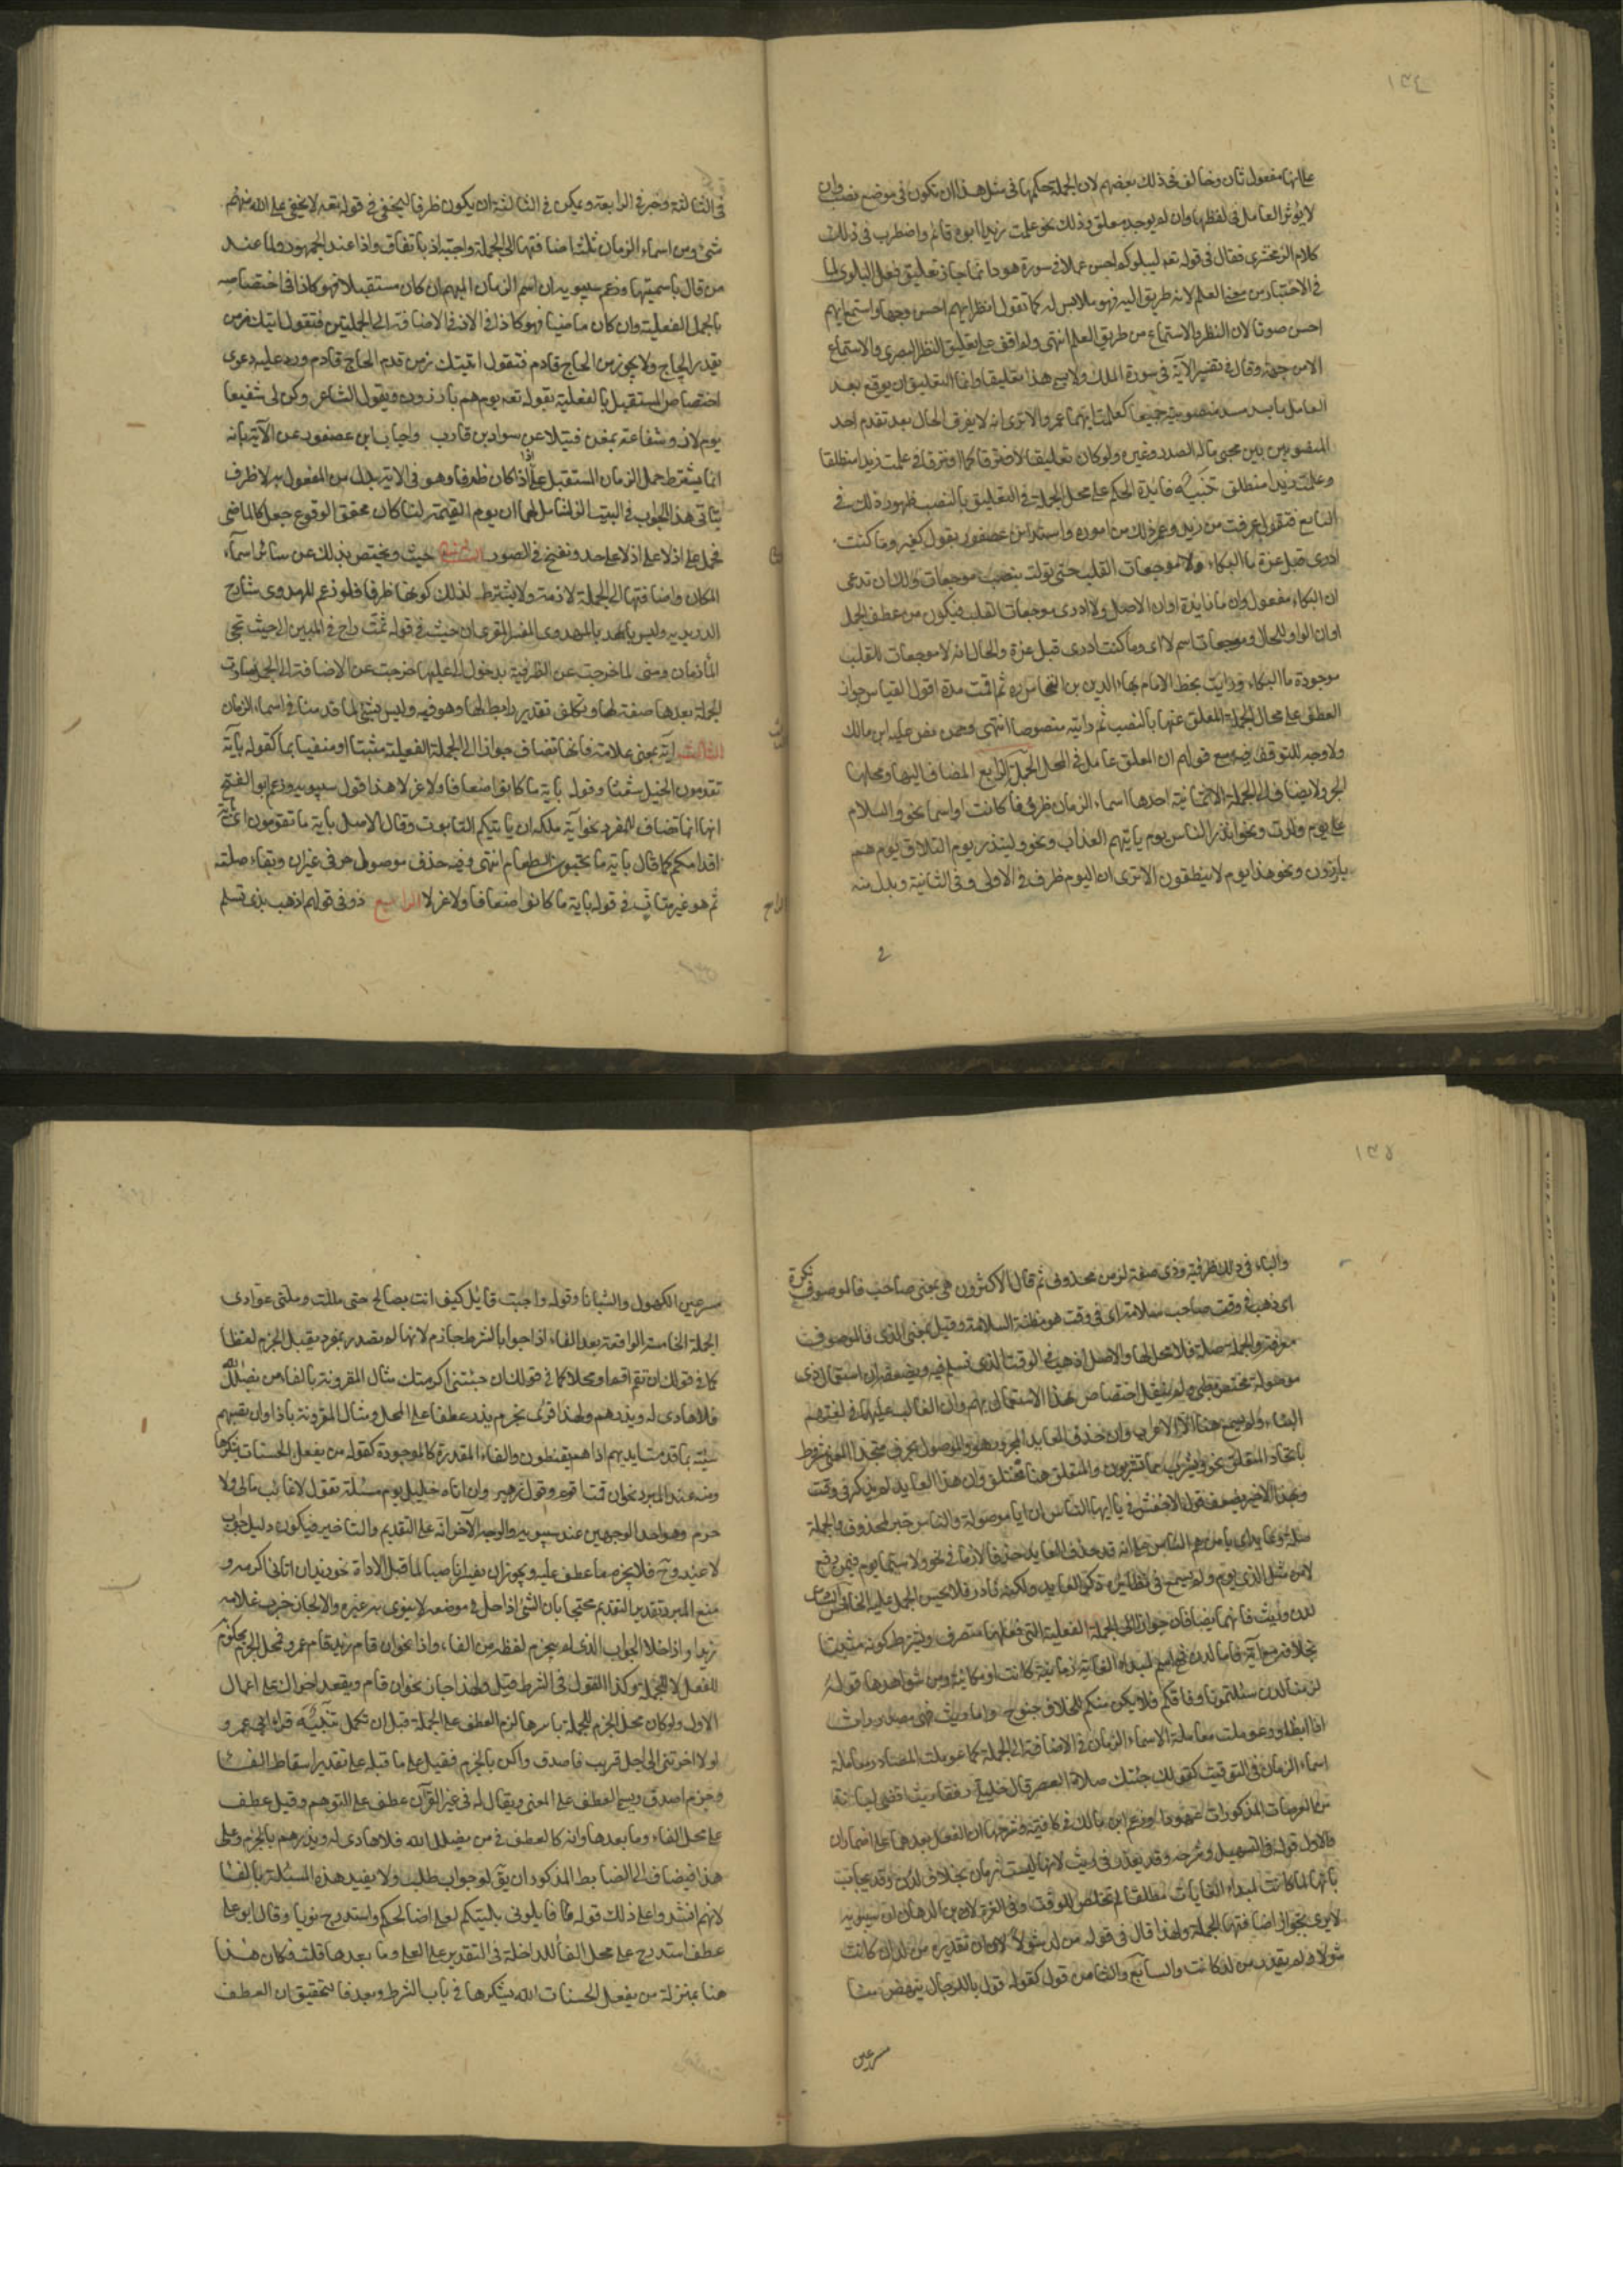 ١٣٤
على انها مفعول ثان وخالف في ذلك بعضهم لان الجملة حكمها في مثل هذا ان تكون في موضع نصب وان
لا يؤثر العامل في لفظها وان لم يوجد معلق وذلك نحو علمت زيدا ابوه قائم واضطرب في ذلك
كلام الزمخشري فقال في قوله تعه ليبلوكم احسن عملا في سورة هود انما جاز تعليق فعل البلوى لما
في الاختبار من معنى العلم لانه طريق اليه فهو ملابس له كما تقول انظر ايهم احسن وجها واستمع ايهم
احسن صوتا لان النظر والاستماع من طريق العلم انتهى ولم اقف على تعليق النظر البصري والاستماع
الا من جهته وقال في تفسير الآية في سورة الملك ولا يسمى هذا تعليقا وانما التعليق ان يوقع بعد
العامل ما يسد مسد منصوبيه جميعا كعلمت ايهما عمرو الا ترى انه لا يفترق الحال بعد تقدم احد
المنصوبين بين مجيء ماله الصدر وغيره ولو كان تعليقا لافترقا كما افترقا في علمت زيدا منطلقا
وعلمت زيد منطلق تنبيه فايدة الحكم على محل الجملة في التعليق بالنصب ظهور ذلك في
التابع فتقول عرفت من زيد وغير ذلك من اموره واستدل ابن عصفور بقول كثير وما كنت
ادرى قبل عزة ما البكاء ولا موجعات القلب حتى تولت بنصب موجعات ولك ان تدعى
ان البكاء مفعول وان ما زايدة او ان الاصل ولا ادرى موجعات القلب فيكون من عطف الجمل
او ان الواو للحال وموجعات اسم لا اى وما كنت ادرى قبل عزة والحال انه لا موجعات للقلب
موجودة ما البكاء ورايت بخط الامام بهاء الدين بن النحاس ره ثم اقمت مدة اقول القياس جواز
العطف على محل الجملة المعلق عنها بالنصب ثم رايته منصوصا انتهى وممن نص عليه ابن مالك
ولا وجه للتوقف فيه مع قولهم ان المعلق عامل في المحل الجملة الرابع المضاف اليها ومحلها
الجر ولا يضاف الى الجملة الا ثمانية احدها اسماء الزمان ظروفا كانت او اسما نحو والسلام
على يوم ولدت ونحو انذر الناس يوم ياتيهم العذاب ونحو لينذر يوم التلاق يوم هم
بارزون ونحو هذا يوم لا ينطقون الا ترى ان اليوم ظرف في الاولى وفى الثانية وبدل منه
في الثالثة وخبر في الرابعة ويمكن في الثالثة ان يكون ظرفا ليخفى في قوله تعه لا يخفى على الله منهم
شئ ومن اسماء الزمان ثلثة اضافتها الى الجملة واجبة اذ باتفاق واذا عند الجمهور ولما عند
من قال باسميتها وزعم سيبويه ان اسم الزمان المبهم ان كان مستقبلا فهو كاذا في اختصاصه
بالجمل الفعلية وان كان ماضيا فهو كاذ في الاضافة الى الجملتين فتقول اتيتك زمن
يقدم الحاج ولا يجوز زمن الحاج قادم فتقول اتيتك زمن قدم الحاج قادم ورد عليه دعوى
اختصاص المستقبل بالفعلية بقوله تعه يوم هم بارزون وبقول الشاعر وكن لى شفيعا
يوم لا ذو شفاعة بمغن فتيلا عن سواد بن قارب واجاب ابن عصفور عن الآية بانه
انما يشترط حمل الزمان المستقبل على اذا اذا كان ظرفا وهو في الاية بدل من المفعول به لا ظرف
يتاتى هذا الجواب في البيت
فحمل على اذ لا على اذا على حد ونفخ في الصور الثانى حيث ويختص بذلك عن سائر اسماء
المكان واضافتها الى الجملة لازمة ولا يشترط لذلك كونها ظرفا فلو زعم المهدوى شارح
الدريدية وليس بالمهدوى المفسر المقرى ان حيث في قوله ثمت راح في الملبين الى حيث تحجى
المأزمان ومنى لما خرجت عن الظرفية بدخول الى عليها خرجت عن الاضافة الى الجمل وصارت
الجملة بعدها صفة لها وتكلف تقدير رابط لها وهو فيه وليس بشئ لما قدمنا في اسماء الزمان
الثالث آية بمعنى علامة فانها تضاف جوازا الى الجملة الفعلية مثبتا او منفيا بما كقوله بآية
تقدمون الخيل شعثا وقوله بآية ما كانوا ضعافا ولا عزلا هذا قول سيبويه وزعم ابو الفتح
انها انما تضاف للمفرد نحو آية ملكه ان ياتيكم التابوت وقال الاصل بآية ما تقدمون اى بآية
اقدامكم كما قال بآية ما يحبون الطعام انتهى وفيه حذف موصول حرفى غير ان وبقاء صلته
ثم هو غير متات في قوله بآية ما كانوا ضعافا ولا عزلا الرابع ذو في قولهم اذهب بذى تسلم
١٣٥
والباء في ذلك ظرفية وذى صفة لزمن محذوف ثم قال الاكثرون هى بمعنى صاحب فالموصوف نكرة
اى اذهب في وقت صاحب سلامة اى في وقت هو مظنة السلامة وقيل بمعنى الذى فالموصوف
معرفة والجملة صلة فلا محل لها والاصل اذهب في الوقت الذى تسلم فيه ويضعفه ان استعمال ذى
موصولة مختص بطى ولم ينقل اختصاص هذا الاستعمال بهم وان الغالب عليها في لغتهم
البناء ولم يسمع هنا الا الاعراب وان حذف العايد المجرور هو والموصول بحرف متحد المعنى مشروط
باتحاد المتعلق نحو ويشرب مما تشربون والمتعلق هنا مختلف وان هذا العايد لم يذكر في وقت
وبهذا الاخير يضعف قول الاخفش في يا ايها الناس ان ايا موصولة والناس خبر لمحذوف والجملة
صلة وعايد اى يا من هم الناس على انه قد حذف العايد حذفا لازما في نحو ولا سيما يوم فيمن رفع
لدن وريث فانهما يضافان جوازا الى الجملة الفعلية التى فعلها متصرف ويشترط كونه مثبتا
بخلافه مع آية فاما لدن فهى اسم لمبداء الغاية زمانية كانت او مكانية ومن شواهدها قوله
لزمنا لدن سالتمونا وفاقكم فلا يكن منكم للخلاف جنوح واما ريث فهى مصدر راث
اذا ابطا وعوملت معاملة الاسماء الزمان في الاضافة الى الجملة كما عوملت المصادر معاملة
اسماء الزمان في التوقيت كقولك جئتك صلاة العصر قال خليلى رفقا ريث اقضى لبانة
من العرصات المذكورات عهودا وزعم ابن مالك في كافيته وشرحها ان الفعل بعدهما على اضمار ان
والاول قوله في التسهيل وشرحه وقد يعذر في ريث لانها ليست زمان بخلاف لدن وقد يجاب
بانها لما كانت لمبداء الغايات مطلقا لم تخلص للوقت وفى الغرة لابن الدهان ان سيبويه
لا يرى بجواز اضافتها الى الجملة ولهذا قال في قوله من لد شولا ان تقديره من لد ان كانت
شولا ولم يقدر من لد كانت والسابع والثامن قول كقوله قول ياللرجال ينهض منا
مسرعين
مسرعين الكهول والشبانا وقوله واجبت قايل كيف انت بصالح حتى مللت وملنى عوادى
الجملة الخامسة الواقعة بعد الفاء او اذا جوابا لشرط جازم لانها لم تصدر بمفرد يقبل الجزم لفظا
كما في قولك ان تقم اقم او محلا كما في قولك ان جئتنى اكرمتك مثال المقرونة بالفاء من يضلل الله
فلا هادى له ويذرهم ولهذا قرئ بجزم يذر عطفا على المحل ومثال المقرونة باذا وان تصبهم
سيئة بما قدمت ايديهم اذا هم يقنطون والفاء المقدرة كالموجودة كقوله من يفعل الحسنات الله يشكرها
ومنه عند المبرد نحو ان قمت اقوم وقول زهير وان اتاه خليل يوم مسئلة يقول لا غائب مالى ولا
حرم وهو احد الوجهين عند سيبويه والوجه الآخر انه على التقديم والتاخير فيكون دليل الجواب
لا عينه وح فلا يجزم ما عطف عليه ويجوز ان يفسر ناصبا لما قبل الاداة نحو زيدا ان اتانى اكرمه و
منع المبرد تقدير التقديم محتجا بان الشئ اذا حل في موضعه لا ينوى به غيره والا لجاز ضرب غلامه
زيدا واذا خلا الجواب الذى لم يجزم لفظه من الفاء واذا نحو ان قام زيد قام عمرو فمحل الجزم محكوم
للفعل لا للجملة وكذا القول في الشرط قيل ولهذا جاز نحو ان قام ويقعد اخواك على اعمال
الاول ولو كان محل الجزم للجملة باسرها لزم العطف على الجملة قبل ان تكمل تنبيه قراءة ابى عمرو
لولا اخرتنى الى اجل قريب فاصدق واكن بالجزم فقيل على ما قبله على تقدير اسقاط الفاء
وجزم اصدق ويسمى العطف على المعنى ويقال له في غير القرآن عطف على التوهم وقيل عطف
على محل الفاء وما بعدها وانه كالعطف في من يضلل الله فلا هادى له ويذرهم بالجزم وعلى
هذا فيضاف الى الضابط المذكور ان يق او جواب طلب ولا يقيد هذه المسئلة بالفاء
لانهم انشدوا على ذلك قوله فابلونى بليتكم لعلى اصالحكم واستدرج نويا وقال ابو على
عطف استدرج على محل الفاء الداخلة في التقدير على لعلى وما بعدها قلت فكان هذا
هنا بمنزلة من يفعل الحسنات الله يشكرها في باب الشرط وبعد فالتحقيق ان العطف